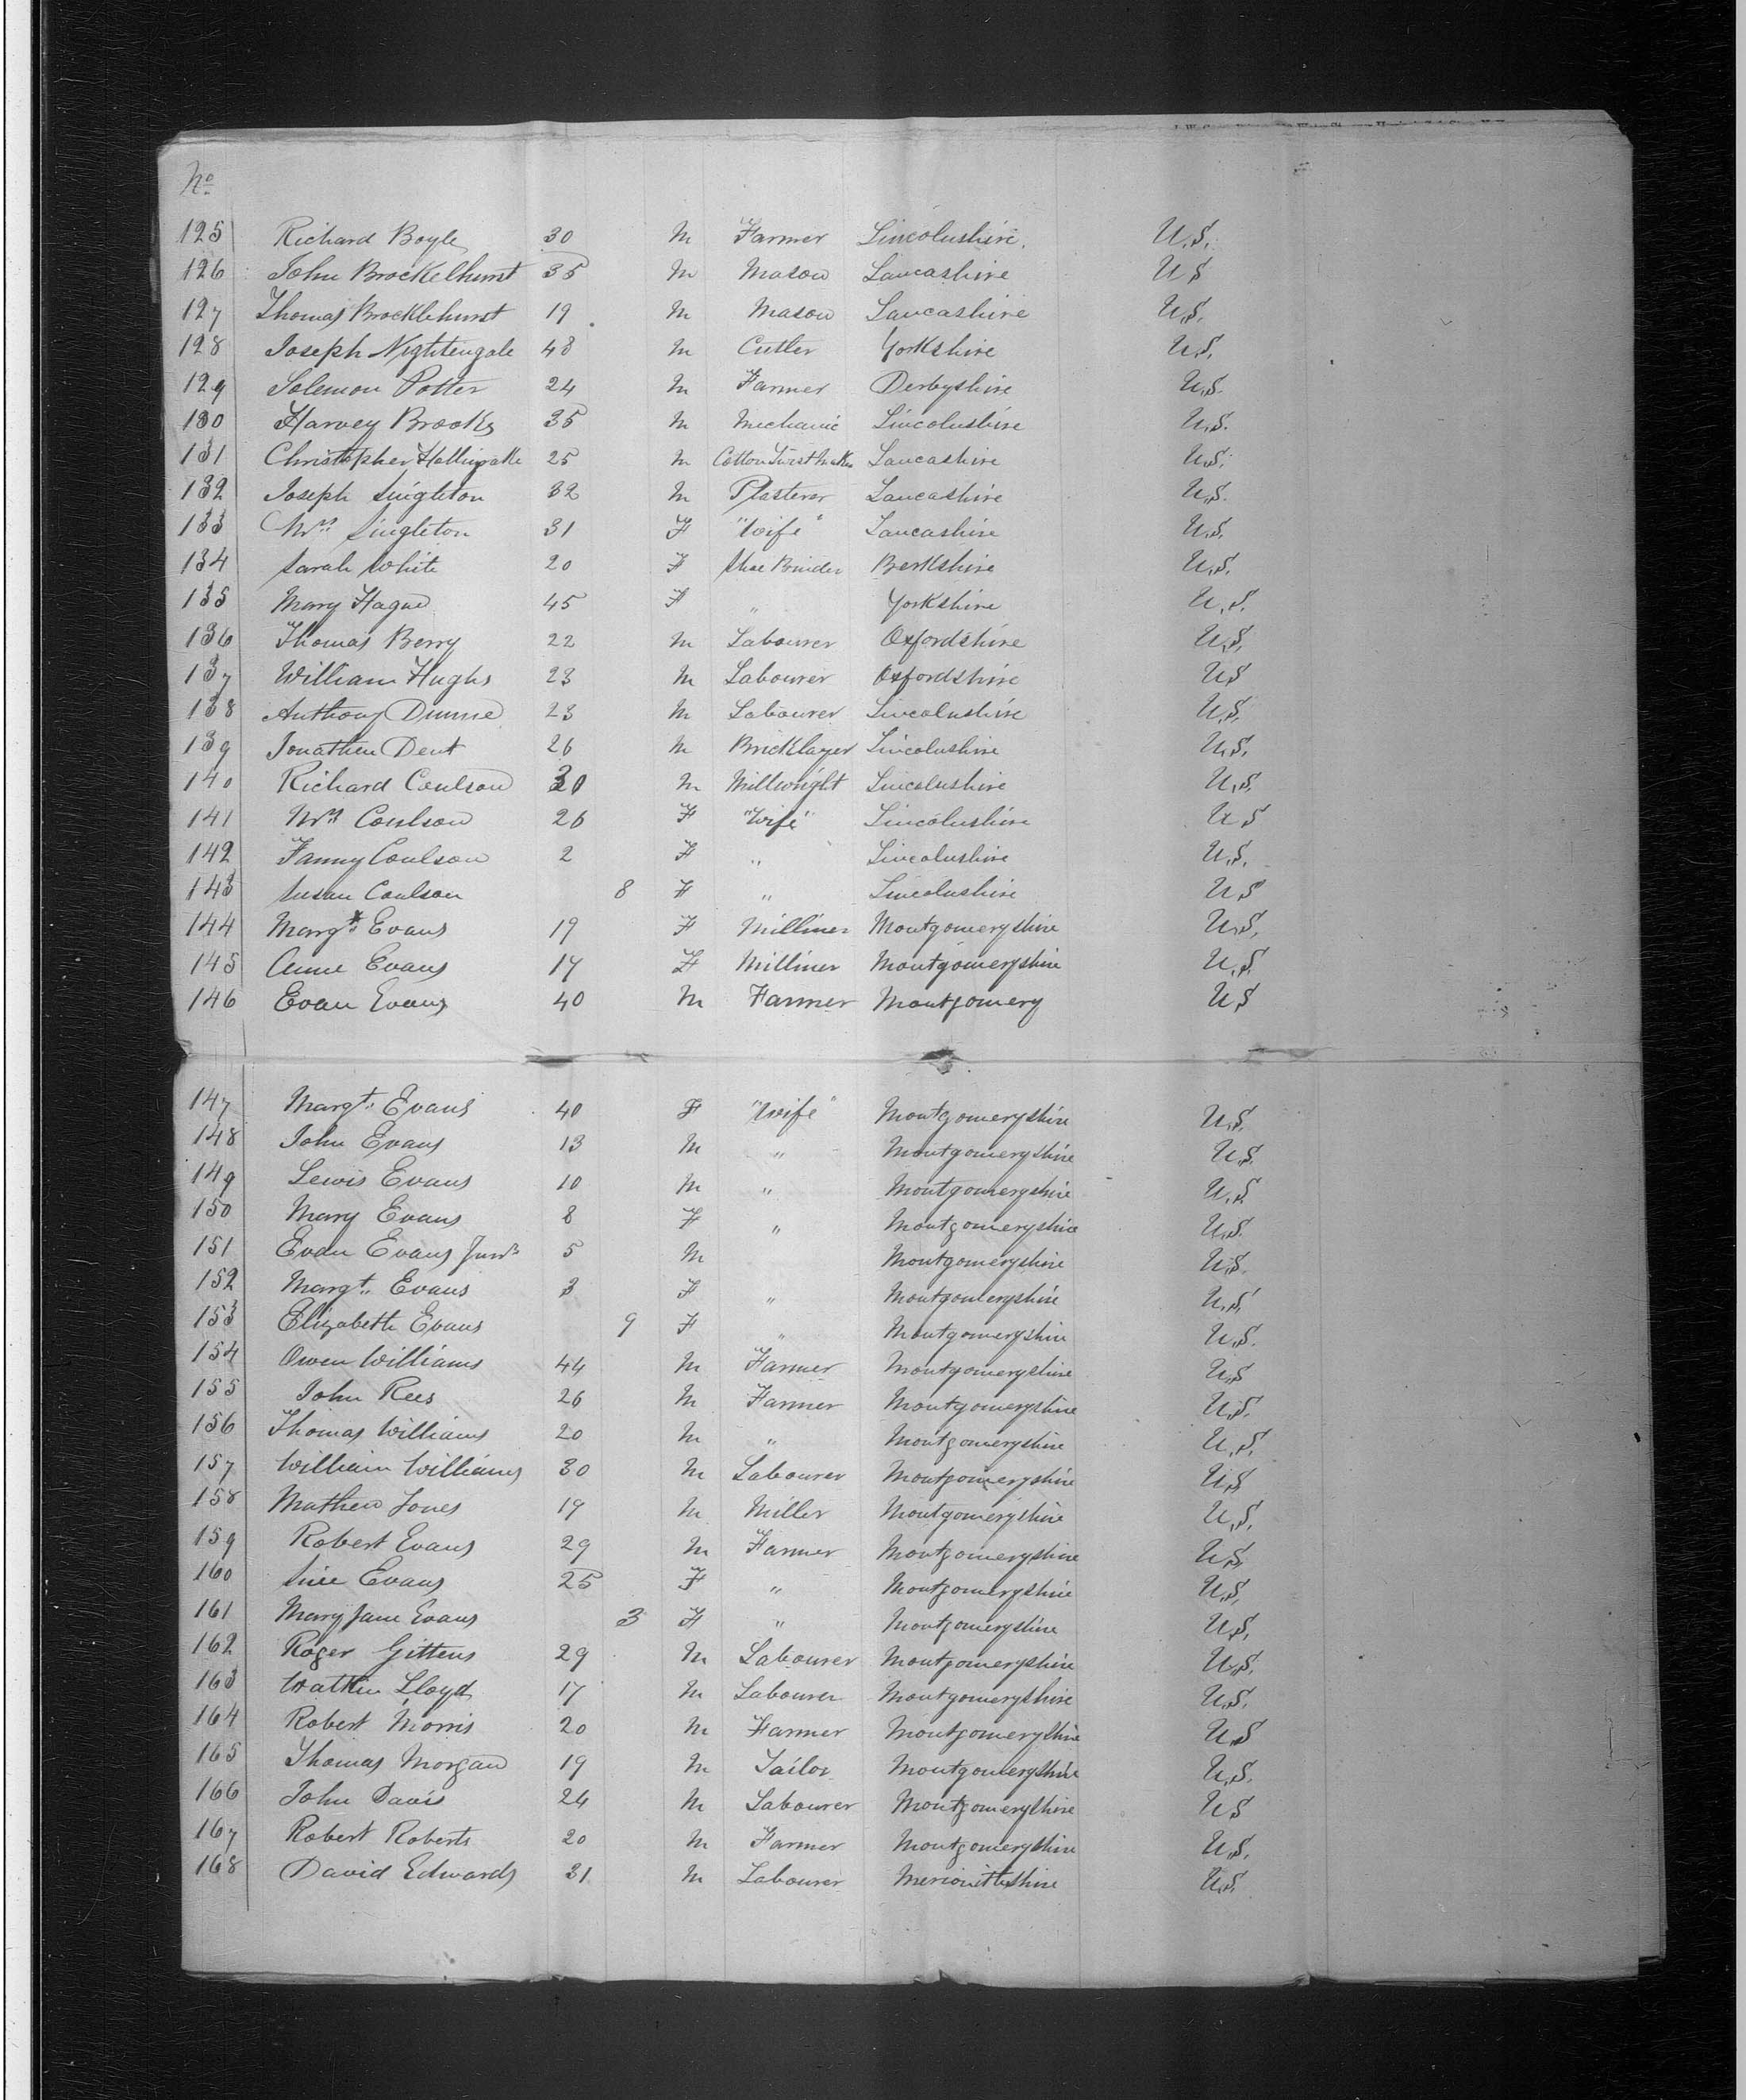 No
125 Richard Boyle 30 M Farmer Lincolnshire. U.S.
126 John Brockelhurst 35 M Mason Lancashire U S
127 Thomas Brocklehurst 19 M Mason Lancashire U.S.
128 Joseph Nightengale 48 M Cutler Yorkshire U.S.
129 Solemon Potter 24 M Farmer Derbyshire U.S.
130 Harvey Brooks 35 M Mechanic Lincolnshire U.S.
131 Christopher 25 M Cotton Lancashire U.S.
132 Joseph Singleton 32 M Plasterer Lancashire U.S.
133 Mrs Singleton 31 F "Wife" Lancashire U.S.
134 Sarah White 20 F Shoe Binder Berkshire U.S.
135 Mary Hague 45 F " Yorkshire U.S.
136 Thomas Berry 22 M Labourer Oxfordshire U.S.
137 William Hughs 23 M Labourer Oxfordshire U.S
138 Anthony Dunne 23 M Labourer Lincolnshire U.S.
139 Jonathen Dent 26 M Bricklayer Lincolnshire U.S.
140 Richard Coulson 30 M Millwright Lincolnshire U.S.
141 Mrs Coulson 26 F "Wife" Lincolnshire U S
142 Fanny Coulson 2 F " Lincolnshire U.S.
143 Susan Coulson 8 F " Lincolnshire U S
144 Margt Evans 19 F Milliner Montgomeryshire U.S.
145 Anne Evans 17 F Milliner Montgomeryshire U.S.
146 Evan Evans 40 M Farmer Montgomery U.S
147 Margt. Evans 40 F "Wife" Montgomeryshire U.S.
148 John Evans 13 M " Montgomeryshire U.S.
149 Lewis Evans 10 M " Montgomeryshire U.S.
150 Mary Evans 8 F " Montgomeryshire U.S.
151 Evan Evans Junr 5 M Montgomeryshire U.S.
152 Margt. Evans 3 F " Montgomeryshire U.S.
153 Elizabeth Evans 9 F " Montgomeryshire U.S.
154 Owen Williams 44 M Farmer Montgomeryshire U.S
155 John Rees 26 M Farmer Montgomeryshire U.S.
156 Thomas Williams 20 M " Montgomeryshire U.S.
157 William Williams 30 M Labourer Montgomeryshire U.S
158 Mathew Jones 19 M Miller Montgomeryshire U.S.
159 Robert Evans 29 M Farmer Montgomeryshire U.S.
160 Evans 25 F " Montgomeryshire U.S.
161 Mary Jane Evans 3 F " Montgomeryshire U.S.
162 Roger Gittens 29 M Labourer Montgomeryshire U.S.
163 Watkin Lloyd 17 M Labourer Montgomeryshire U.S.
164 Robert Morris 20 M Farmer Montgomeryshire U.S
165 Thomas Morgan 19 M Tailor Montgomeryshire U.S.
166 John Davis 24 M Labourer Montgomeryshire U S
167 Robert Roberts 20 M Farmer Montgomeryshire U.S.
168 David Edwards 31 M Labourer Merionithshire U.S.